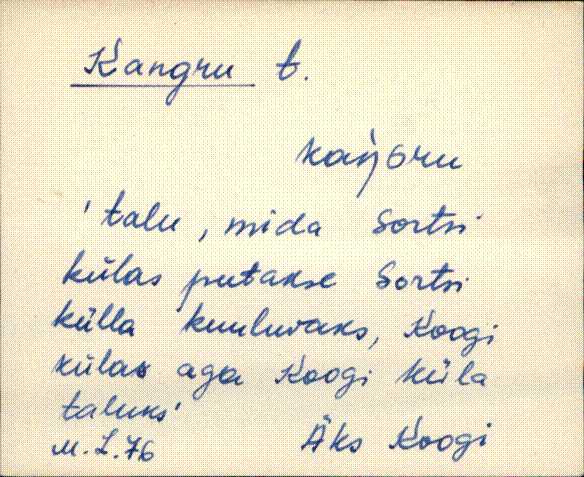 Kangru t.
kaŋGru
'talu, mida Sortsi
külas peetakse Sortsi
külla kuuluvaks, Koogi
külas aga Koogi küla
taluks'
M.L.76 Äks Koogi